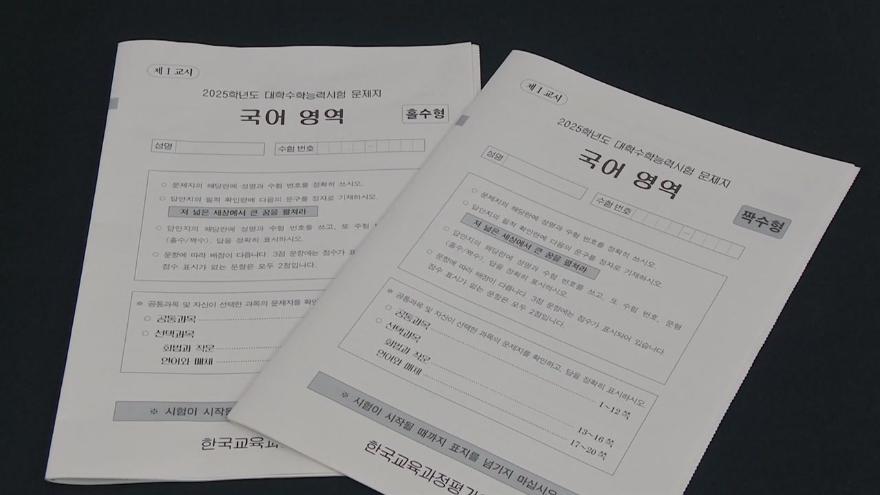 제 1 교시
2025학년도 대학수학능력시험 문제지
국어 영역
홀수형
성명
수험 번호
○ 문제지의 해당란에 성명과 수험 번호를 정확히 쓰시오.
○ 답안지의 필적 확인란에 다음의 문구를 정자로 기재하시오.
저 넓은 세상에서 큰 꿈을 펼쳐라
○ 답안지의 해당란에 성명과 수험 번호를 쓰고, 또 수험
(홀수/짝수), 답을 정확히 표시하시오.
○ 문항에 따라 배점이 다릅니다. 3점 문항에는 점수가
점수 표시가 없는 문항은 모두 2점입니다.
※ 공통과목 및 자신이 선택한 과목의 문제지를 확인
○ 공통과목
○ 선택과목
화법과 작문
언어와 매체
※ 시험이 시작될
한국교육과
제 1 교시
2025학년도 대학수학능력시험 문제지
국어 영역
짝수형
성명
수험 번호
○ 문제지의 해당란에 성명과 수험 번호를 정확히 쓰시오.
○ 답안지의 필적 확인란에 다음의 문구를 정자로 기재하시오.
저 넓은 세상에서 큰 꿈을 펼쳐라
○ 답안지의 해당란에 성명과 수험 번호를 쓰고, 또 수험 번호, 문형
(홀수/짝수), 답을 정확히 표시하시오.
○ 문항에 따라 배점이 다릅니다. 3점 문항에는 점수가 표시되어 있습니다.
점수 표시가 없는 문항은 모두 2점입니다.
※ 공통과목 및 자신이 선택한 과목의 문제지를 확인하고, 답을 정확히 표시하시오.
○ 공통과목 1~12쪽
○ 선택과목
화법과 작문 13~16쪽
언어와 매체 17~20쪽
※ 시험이 시작될 때까지 표지를 넘기지 마십시오.
한국교육과정평가